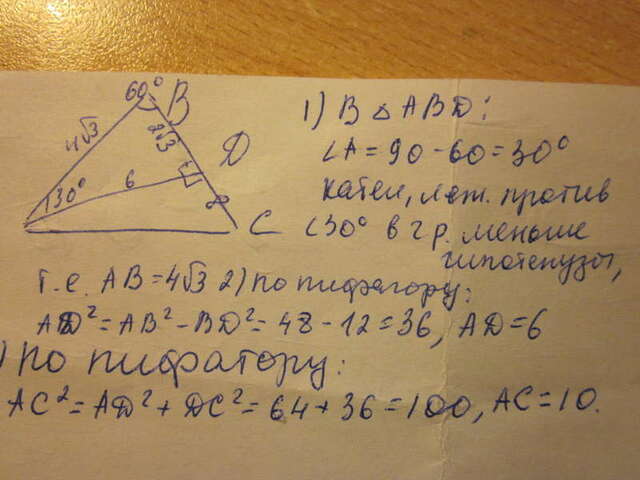 60°
B
4√3
2√3
30°
6
D
8
C
1) В △ ABD:
∠A = 90 - 60 = 30°
катет, леж. против
∠30° в 2 р. меньше
гипотенузы,
т.е. AB = 4√3 2) по пифагору:
AD² = AB² - BD² = 48 - 12 = 36, AD = 6
) по пифагору:
AC² = AD² + DC² = 64 + 36 = 100, AC = 10.